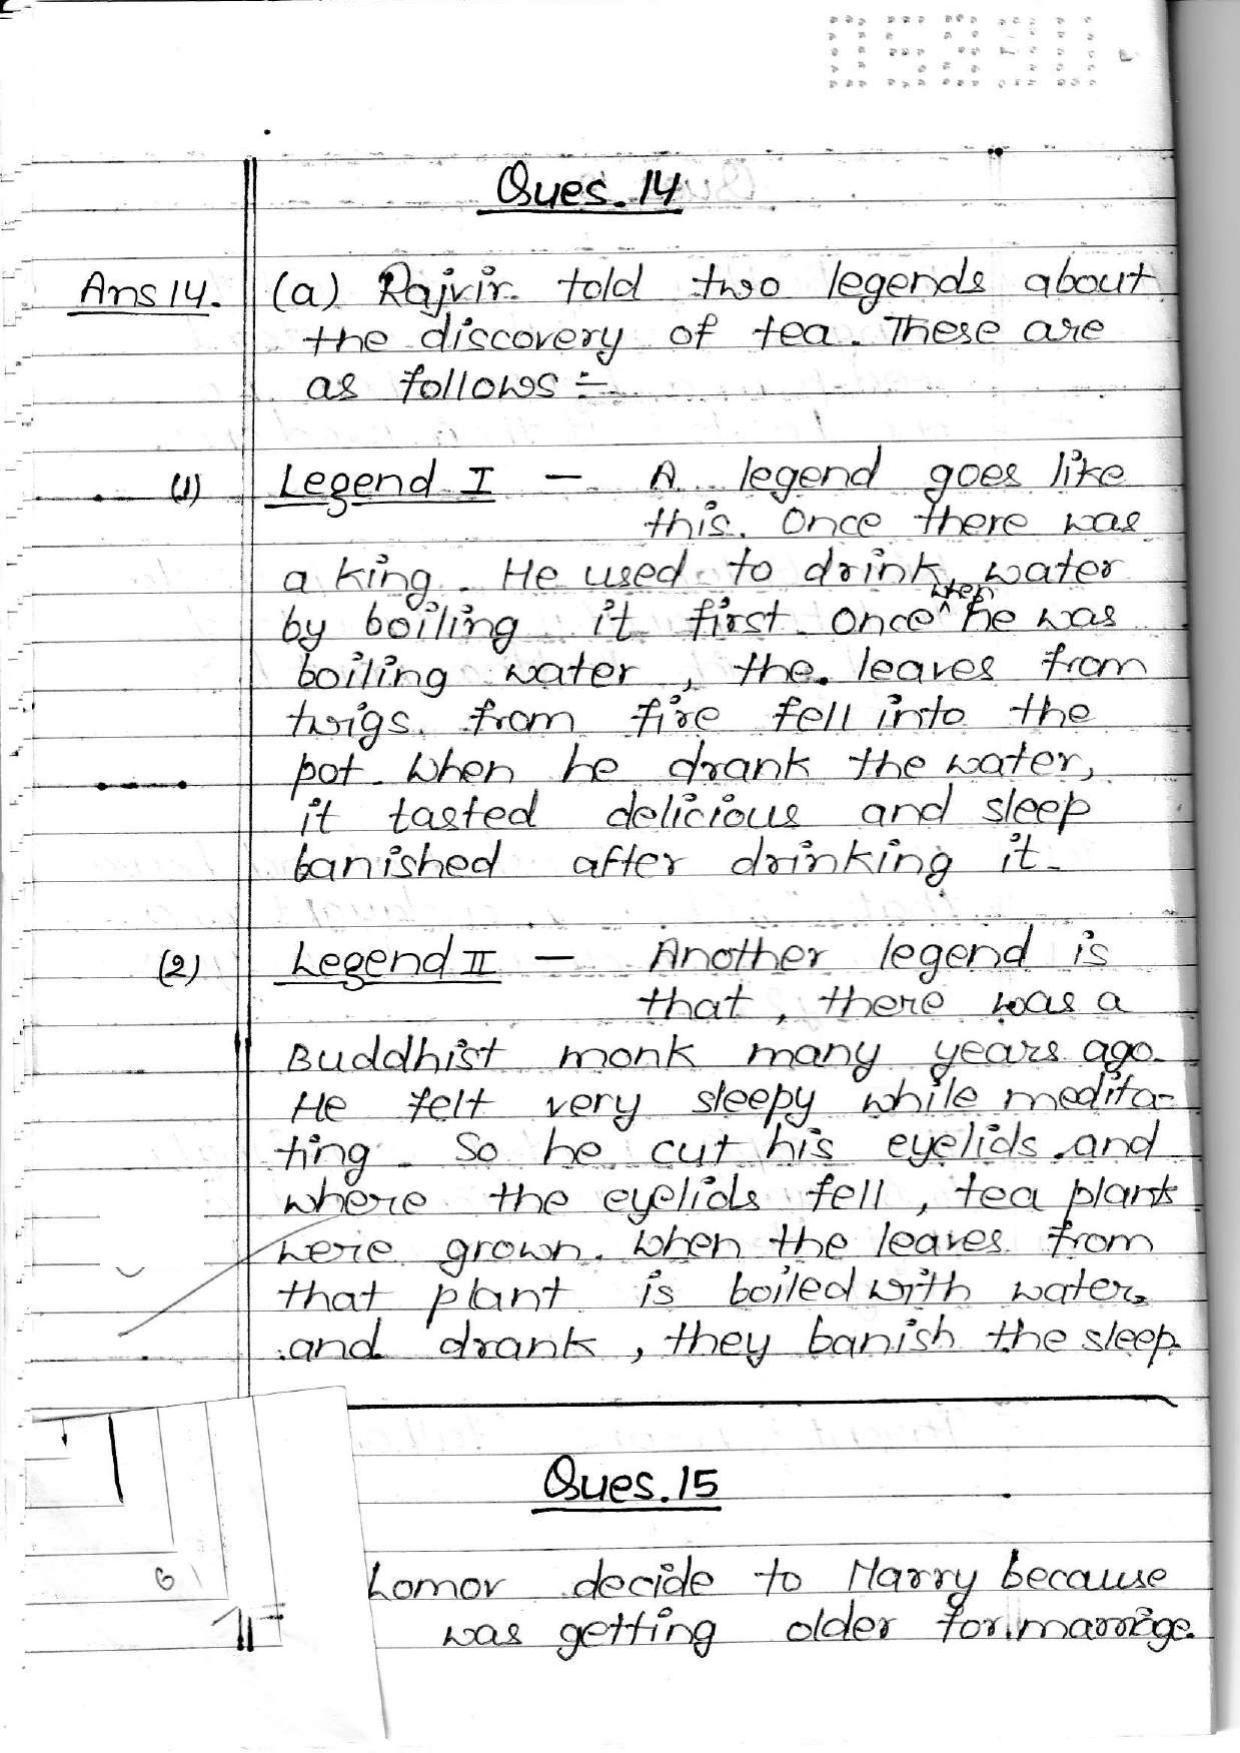 Ques. 14
Ans 14. (a) Rajvir told two legends about
the discovery of tea. These are
as follows :-
(1) Legend I - A legend goes like
this. Once there was
a king. He used to drink water
by boiling it first. Once ^when he was
boiling water, the leaves from
twigs from fire fell into the
pot. When he drank the water,
it tasted delicious and sleep
banished after drinking it.
(2) Legend II - Another legend is
that, there was a
Buddhist monk many years ago.
He felt very sleepy while medita-
ting. So he cut his eyelids and
where the eyelids fell, tea plants
were grown. When the leaves from
that plant is boiled with water
and drank, they banish the sleep.
Ques. 15
Lomov decide to Marry because
was getting older for marriage.